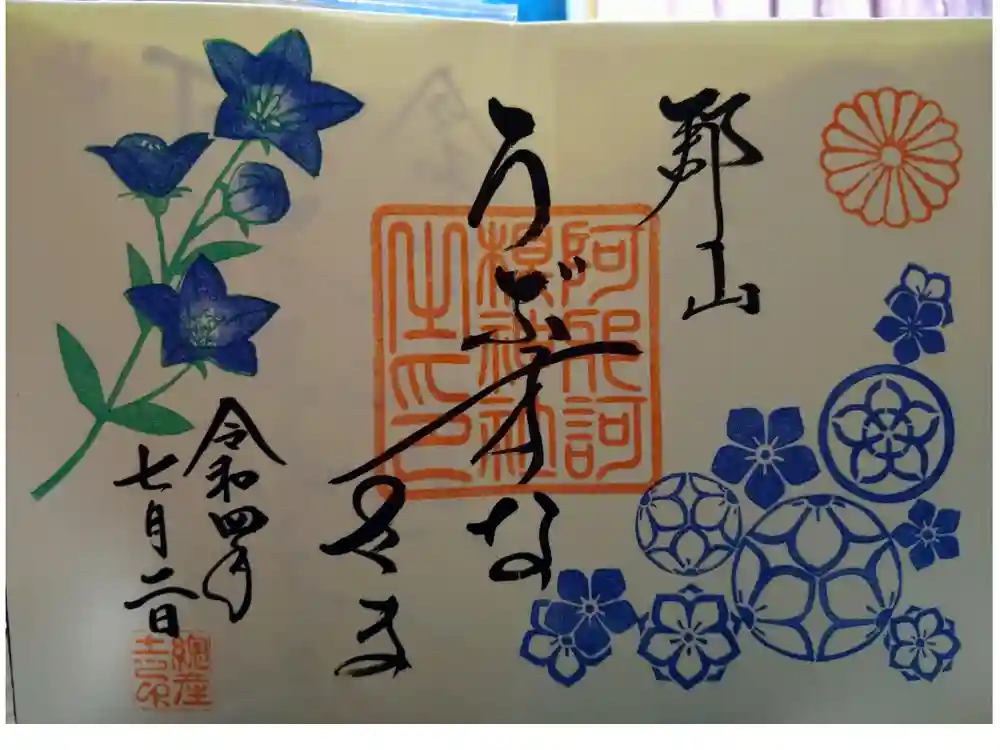 郡山
うぶすな
さま
阿邪訶
根神社
之印
令和四年
七月二日
總産